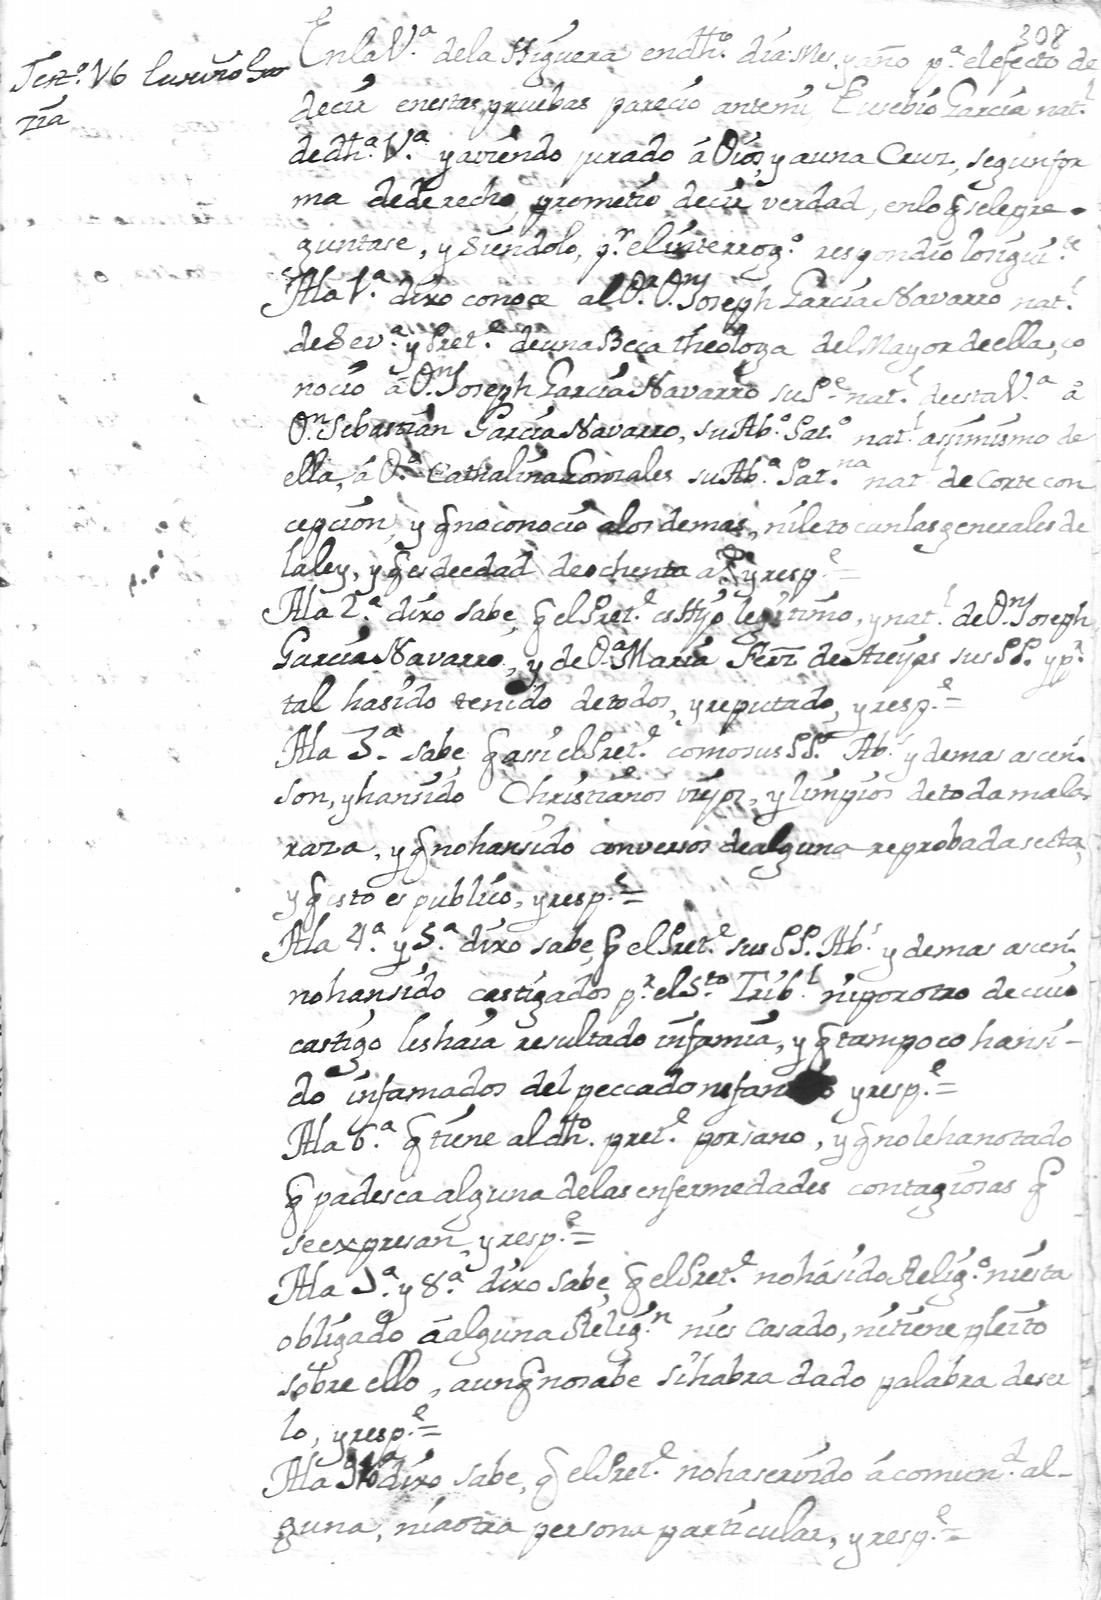 308
Test.º V6 Eusevio Gar
zia
En la V.ª de la Higuera en dh.º dia Mes, y año p.ª el efecto de
decir en estas pruebas parecio ante mi Eusebio Garcia nat.l
de dh.ª V.ª y aviendo jurado á Dios, y a una Cruz, segun for
ma de derecho, prometio decir verdad, en lo q̃ se le pre-
guntase, y siendolo, p.r el interrog.º respondio lo sigui.te
A la 1.ª dixo conoce al D.r D.n Joseph Garcia Navarro nat.l
de Sev.ª y Pret.e de una Beca theologa del Mayor de ella, co
nocio á D.n Joseph Garcia Navarro su P.e nat.l de esta V.ª á
D.n Sebastian Garcia Navarro, su Ab.º Pat.º nat.l assimismo de
ella, á D.ª Cathalina Gonzales su Ab.ª Pat.na nat.l de Corte con
cepcion, y q̃ no conocio a los demas, ni le tocan las generales de
la ley, y q̃ es de edad de ochenta a.s y resp.e =
A la 2.ª dixo sabe, q̃ el Pret.e es Hijo legitimo, y nat.l de D.n Joseph
Garcia Navarro, y de D.ª Maria Ferz de Areyas sus PP. y p.r
tal ha sido tenido de todos, y reputado, y resp.e =
A la 3.ª sabe q̃ assi el Pret.e como sus PP. Ab.s y demas ascen.s
son, y han sido Christianos viejos, y limpios de toda mala
raza, y q̃ no han sido conversos de alguna reprobada secta,
y q̃ esto es publico, y resp.e =
A la 4.ª y 5.ª dixo sabe, q̃ el Pret.e sus PP. Ab.s y demas ascen.s
no han sido castigados p.r el S.to Trib.l ni por otro de cuio
castigo les haia resultado infamia, y q̃ tampoco han si-
do infamados del peccado nefando y resp.e =
A la 6.ª q̃ tiene al dh.º pret.e por sano, y q̃ no le ha notado
q̃ padesca alguna de las enfermedades contagiosas q̃
se expresan, y resp.e =
A la 7.ª y 8.ª dixo sabe q̃ el Pret.e no há sido Relig.º ni esta
obligado á alguna Relig.n ni es casado, ni tiene pleito
sobre ello, aunq̃ no sabe si habra dado palabra de ser
lo, y resp.e =
A la dixo sabe, q̃ el Pret.e no ha servido á comun.d al-
guna, ni a otra persona particular, y resp.e =